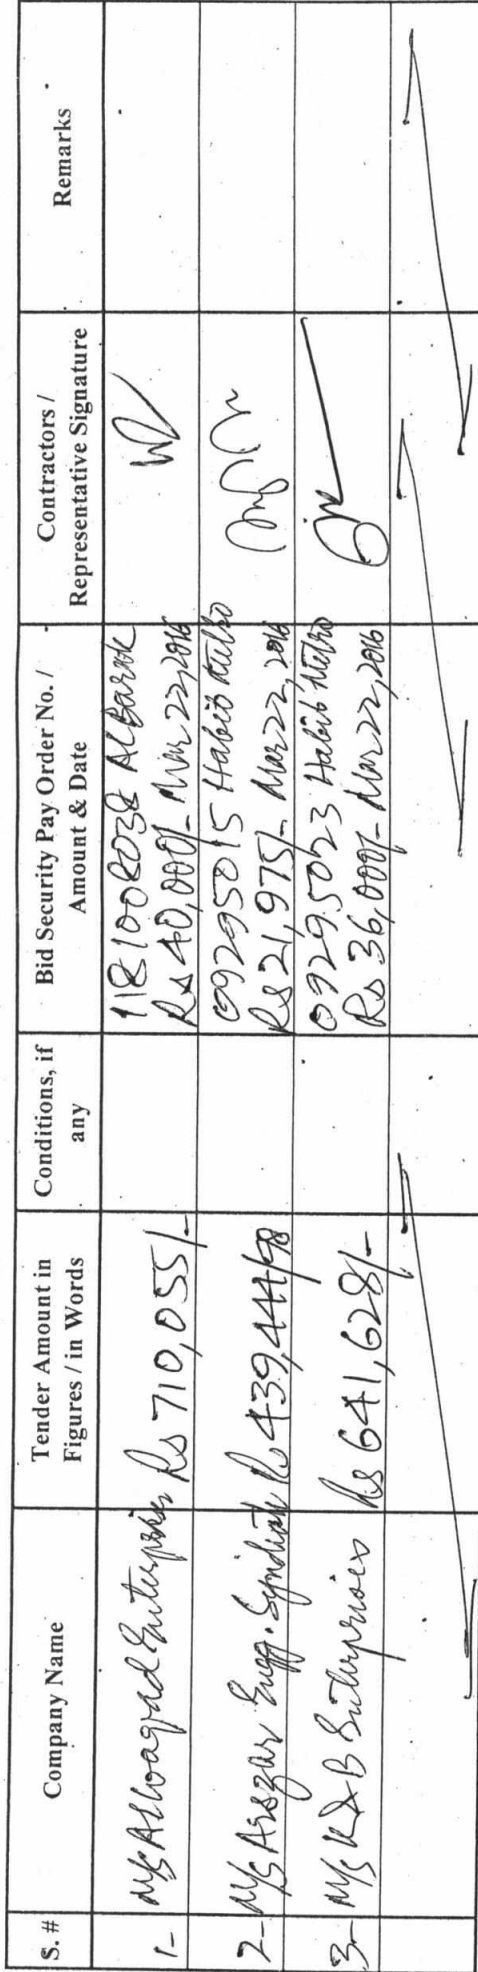 S. #
Company Name
Tender Amount in
Figures / in Words
Conditions, if
any
Bid Security Pay Order No. /
Amount & Date
Contractors /
Representative Signature
Remarks
1- M/s Alwaqad Enterprises Rs 710,055/- 1181008038 AlBarak
Rs 40,000/- Mar 22, 2016
2- M/s Engg. Syndicate Rs 439,444/98 09295015 Habib Metro
Rs 21,975/- Mar 22, 2016
3- M/s K&B Enterprises Rs 641,628/- 09295023 Habib Metro
Rs 36,000/- Mar 22, 2016